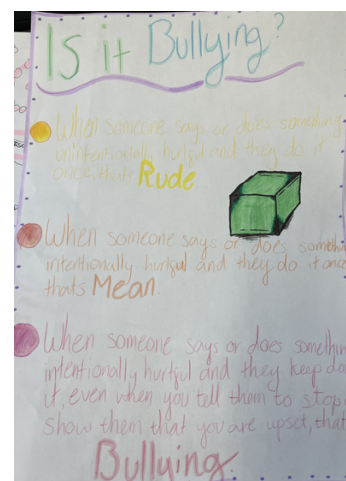 Is it Bullying?
When someone says or does something
unintentionally hurtful and they do it
once, thats Rude
When someone says or does somethin
intentionally hurtful and they do it once
thats Mean.
When someone says or does somethin
intentionally hurtful and they keep do
it, even when you tell them to stop
show them that you are upset, that
Bullying.